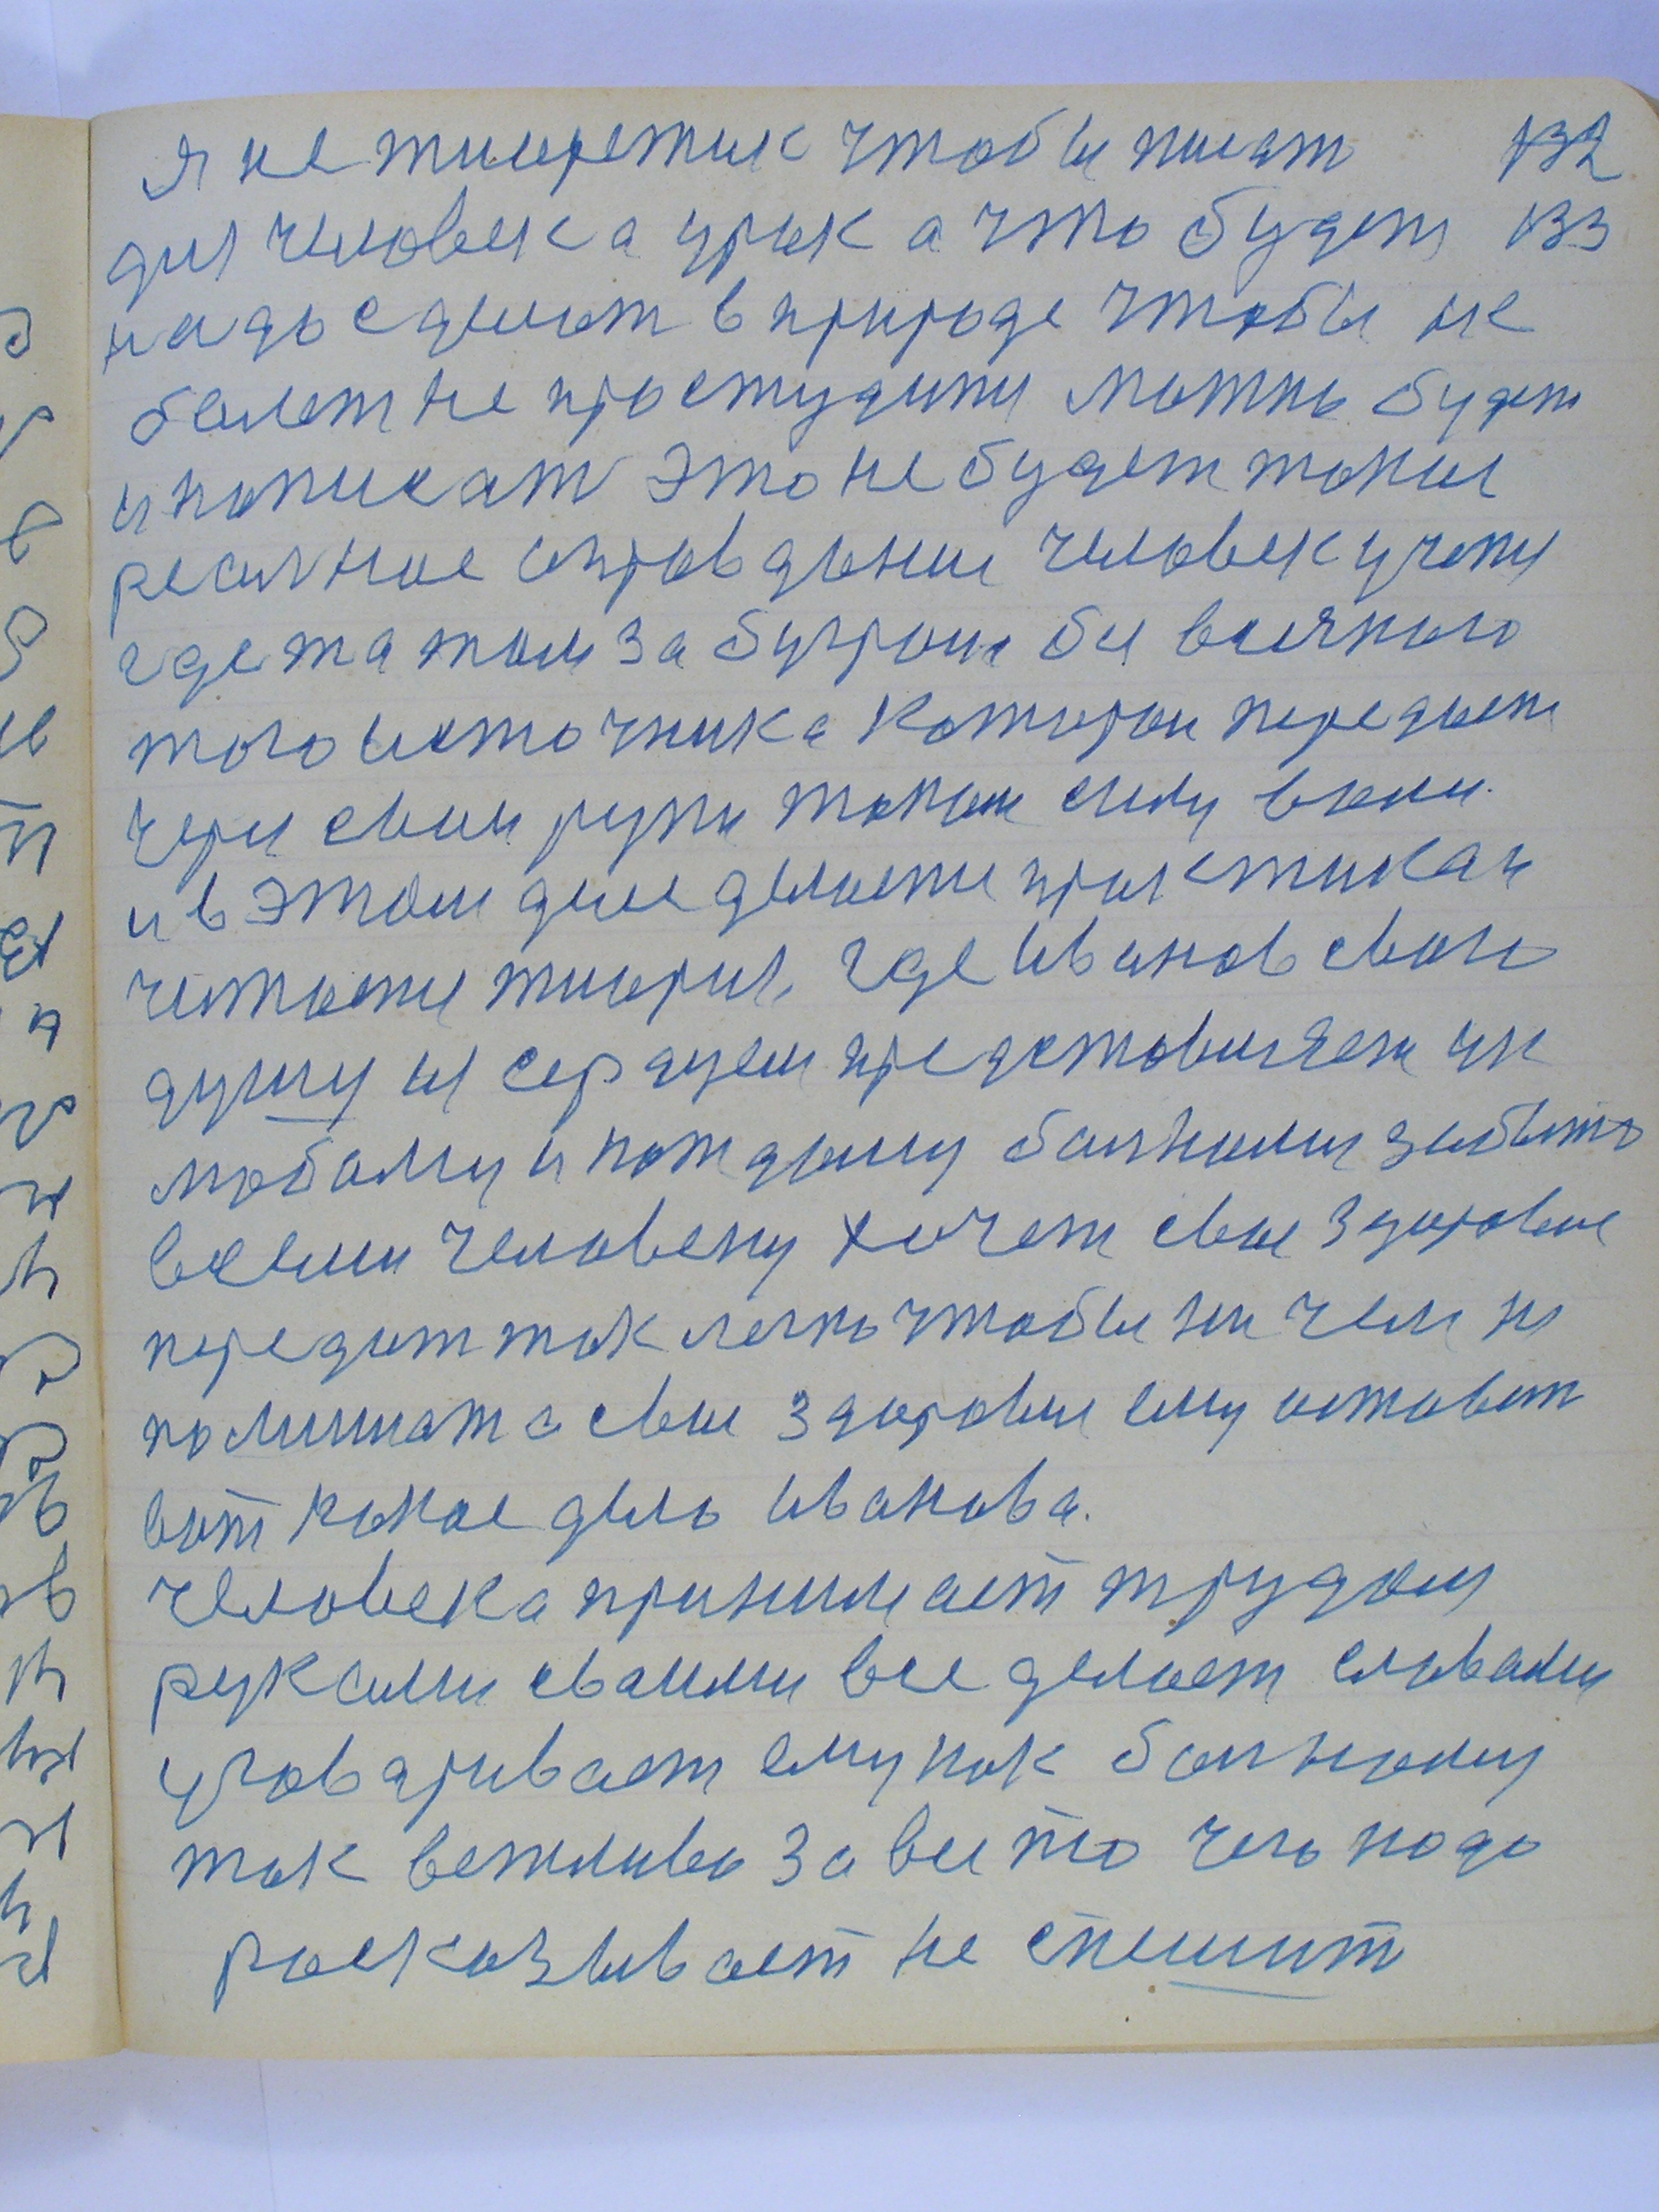 я не тиоретик чтобы писат 132
для человека урок а что будет 133
надо сделат в природе чтобы не
болет не простудит можно будет
и написат это не будет такое
реалное оправдание человек учоны
где та там за бугром без всякого
того источника каторои передает
через свои руки такои силу воли.
и в этом деле делаете практика и
читаете тиорию, где Иванов свою
душу и сердцем представляет их
любому и каждому болному забыто
всеми человеку хочет свое здоровие
передат так легко чтобы ни чем не
помишат а свое здоровие ему оставит
вот какое дело Иванова.
человека принимает трудом
руками своими все делает словами
уговаривает ему как болному
так вежливо за все то чего надо
росказывает не спешит